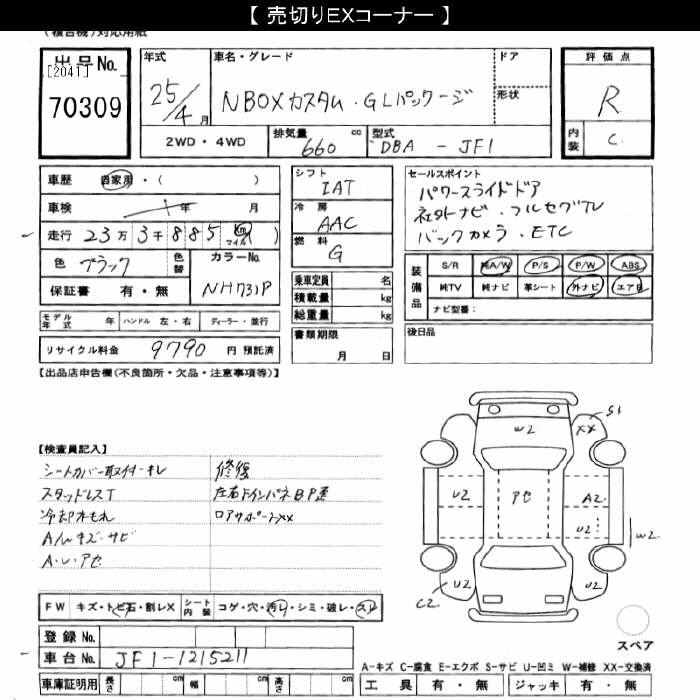 【 売切りEXコーナー 】
(複合機)対応用紙
出品No.
[2041]
70309
年式
25/4 月
車名・グレード
NBOXカスタム・GLパッケージ
ドア
形状
2WD・4WD
排気量
660 cc
型式
DBA - JF1
評価点
R
内装
C
車歴 自家用・( )
車検 年 月
走行 23万3千885 Km マイル )
色 ブラック
色替
カラーNo.
NH731P
保証書 有・無
モデル年式 年 ハンドル 左・右 ディーラー・並行
リサイクル料金 9790 円 預託済
シフト
IAT
冷房
AAC
燃料
G
乗車定員 名
積載量 kg
総重量 kg
書類期限
月 日
セールスポイント
パワースライドドア
社外ナビ・フルセグTV
バックカメラ・ETC
装備品
S/R 純A/W P/S P/W ABS
純TV 純ナビ 革シート 外ナビ エアB
ナビ型番:
後日品
【出品店申告欄(不良箇所・欠品・注意事項等)】
【検査員記入】
シートカバー取付・キレ
スタッドレスT
冷却水もれ
A/wキズ・サビ
A・U・アセ
修復
左右ドインパネB.P歪
ロアサポートxx
FW キズ・トビ石・割レX
シート内装 コゲ・穴・汚レ・シミ・破レ・スレ
登録No.
車台No. JF1-1215211
車庫証明用 長さ cm 幅 cm 高さ cm
S1
W2
XX
U2
アセ
A2
U2
W2
U2
U2
C2
スペア
A-キズ C-腐食 E-エクボ S-サビ U-凹ミ W-補修 XX-交換済
工具 有・無 ジャッキ 有・無